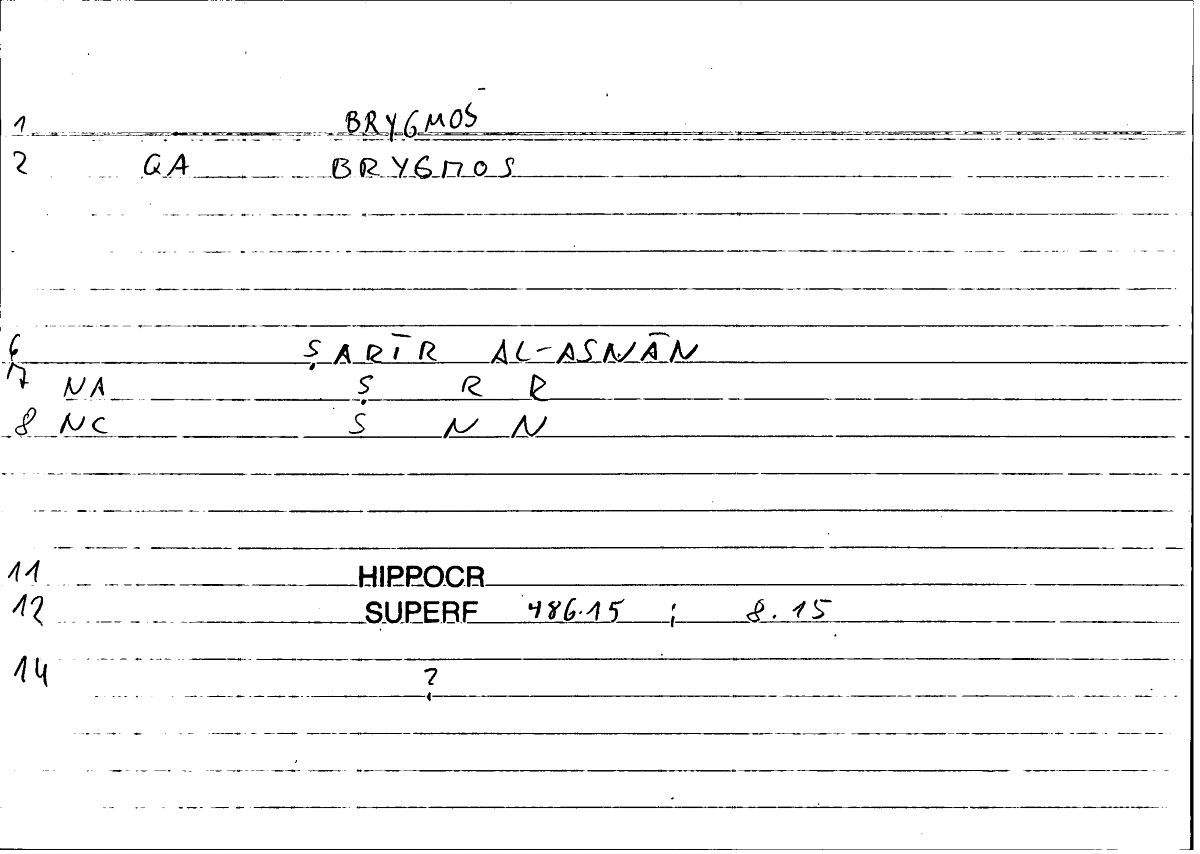 1 BRYGMOS
2 QA BRYGMOS
6 ṢARĪR AL-ASNĀN
7 NA Ṣ R R
8 NC S N N
11 HIPPOCR
12 SUPERF 486.15 ; 8.15
14 ?